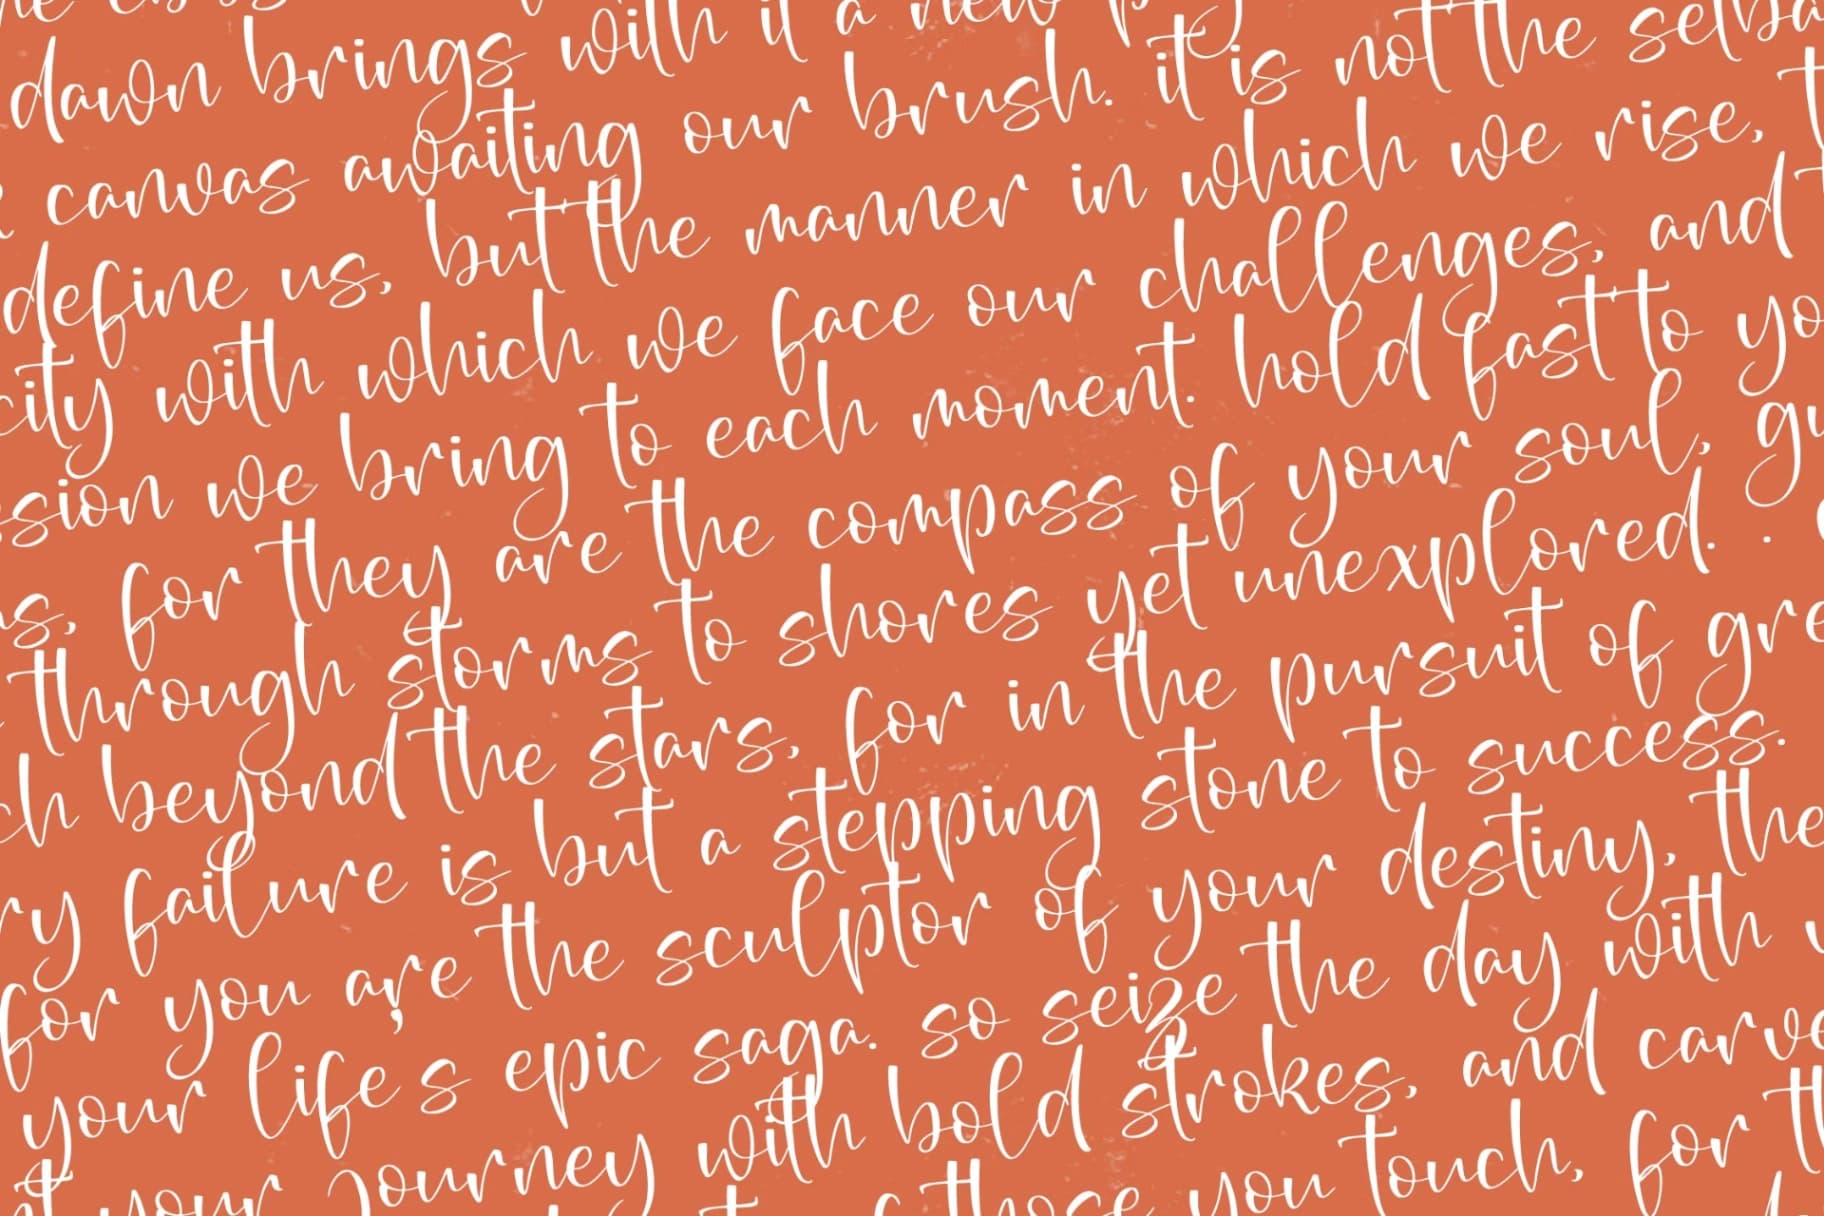 dawn brings with it a new
canvas awaiting our brush. it is not the
define us, but the manner in which we rise,
with which we face our challenges, and
we bring to each moment. hold fast to
for they are the compass of your soul,
through storms to shores yet unexplored. .
beyond the stars, for in the pursuit of
failure is but a stepping stone to success.
for you are the sculptor of your destiny, the
your life's epic saga. so seize the day with
your journey with bold strokes, and carve
those you touch, for